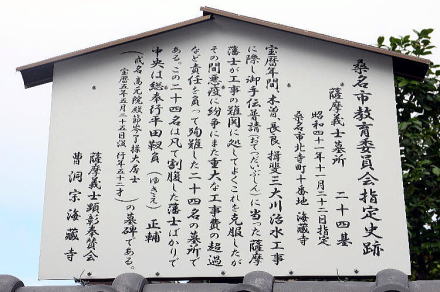 桑名市教育委員会指定史跡
薩摩義士墓所　二十四基
昭和四十一年十一月二十二日指定
桑名市北寺町十番地 海蔵寺
宝暦年間、木曽、長良、揖斐三大川治水工事
に際し御手伝普請（おてつだいぶしん）に当った薩摩
藩士が工事の難関に処してよくこれを克服したが
その間悪疫に紛争にまた重大な工事費の超過
など責任を負って殉難した二十四名の墓所で
ある。この二十四名は凡て割腹した藩士ばかりで
中央は総奉行平田靱員（ゆきえ）正輔
（戒名 高元院殿節岑了操大居士
宝暦五年五月二十五日没 行年五十二才）の墓碑である。
薩摩義士顕彰奉賛会
曹洞宗 海蔵寺